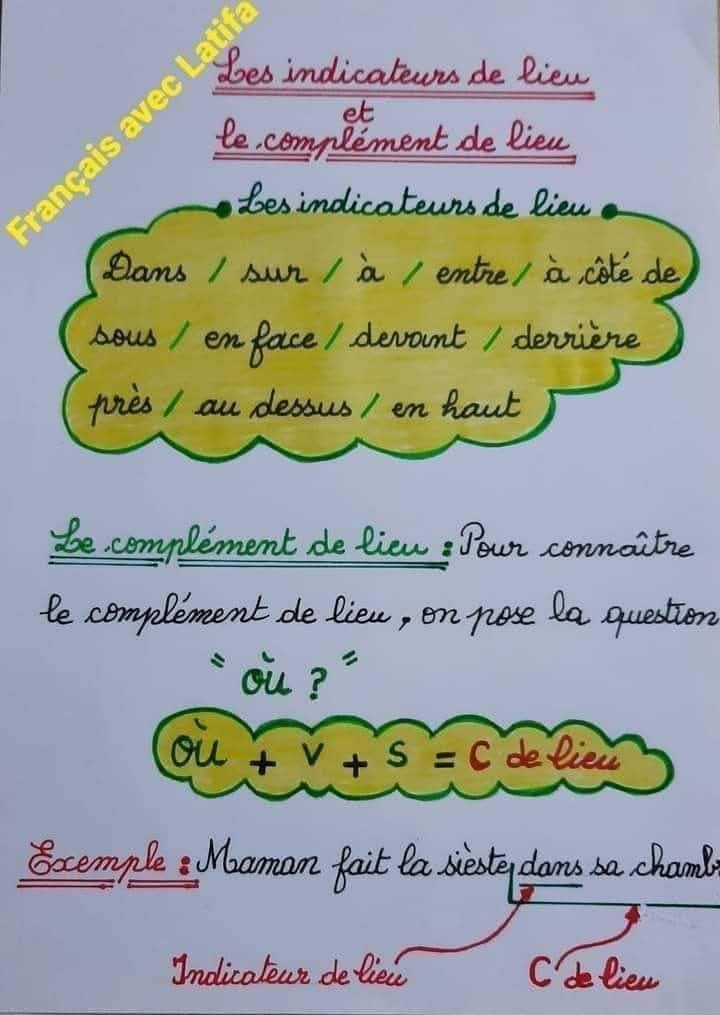 Français avec Latifa
Les indicateurs de lieu
et
le complément de lieu
Les indicateurs de lieu
Dans / sur / à / entre / à côté de
sous / en face / devant / derrière
près / au dessus / en haut
Le complément de lieu : Pour connaître
le complément de lieu, on pose la question
" où ? "
où + V + S = C de lieu
Exemple : Maman fait la sièste dans sa chamb
Indicateur de lieu
C de lieu